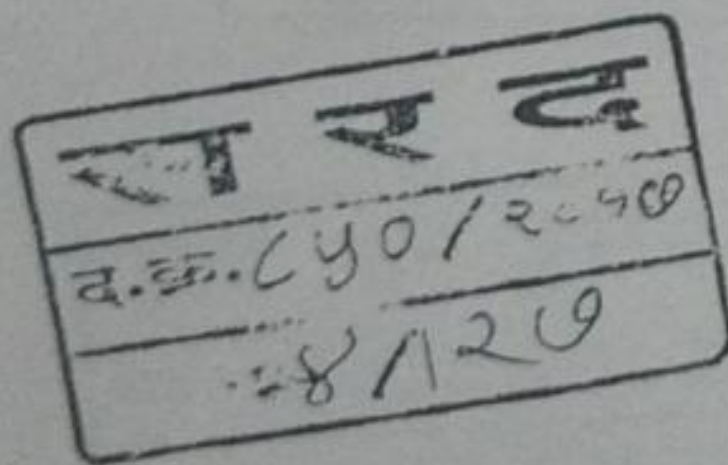 र द
द.क्र.८५०/२०१७
४/१२७